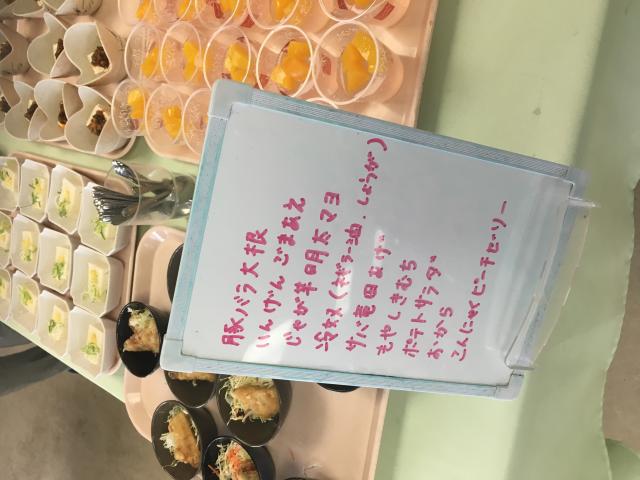 豚バラ大根
いんげんごまあえ
じゃが芋明太マヨ
冷奴(ネギラー油・しょうが)
サバ竜田あげ
もやしきむち
ポテトサラダ
おから
こんにゃくピーチゼリー